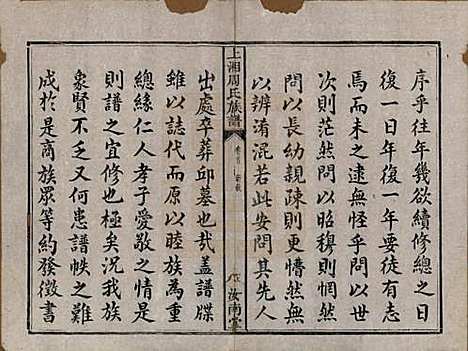 序乎往年幾欲續修總之日
復一日年復一年要徒有志
焉而未之逮無怪乎問以世
次則茫然問以昭穆則惘然
問以長幼親疎則更懵然而
以辨淆混若此安問其先人
上湘周氏族譜
卷首
汝南堂
出處卒葬邱墓也哉蓋譜牒
雖以誌代而原以睦族為重
總緣仁人孝子愛敬之情是
則譜之宜修也極矣況我族
象賢不乏又何患譜帙之難
成於是商族眾等約發徵書